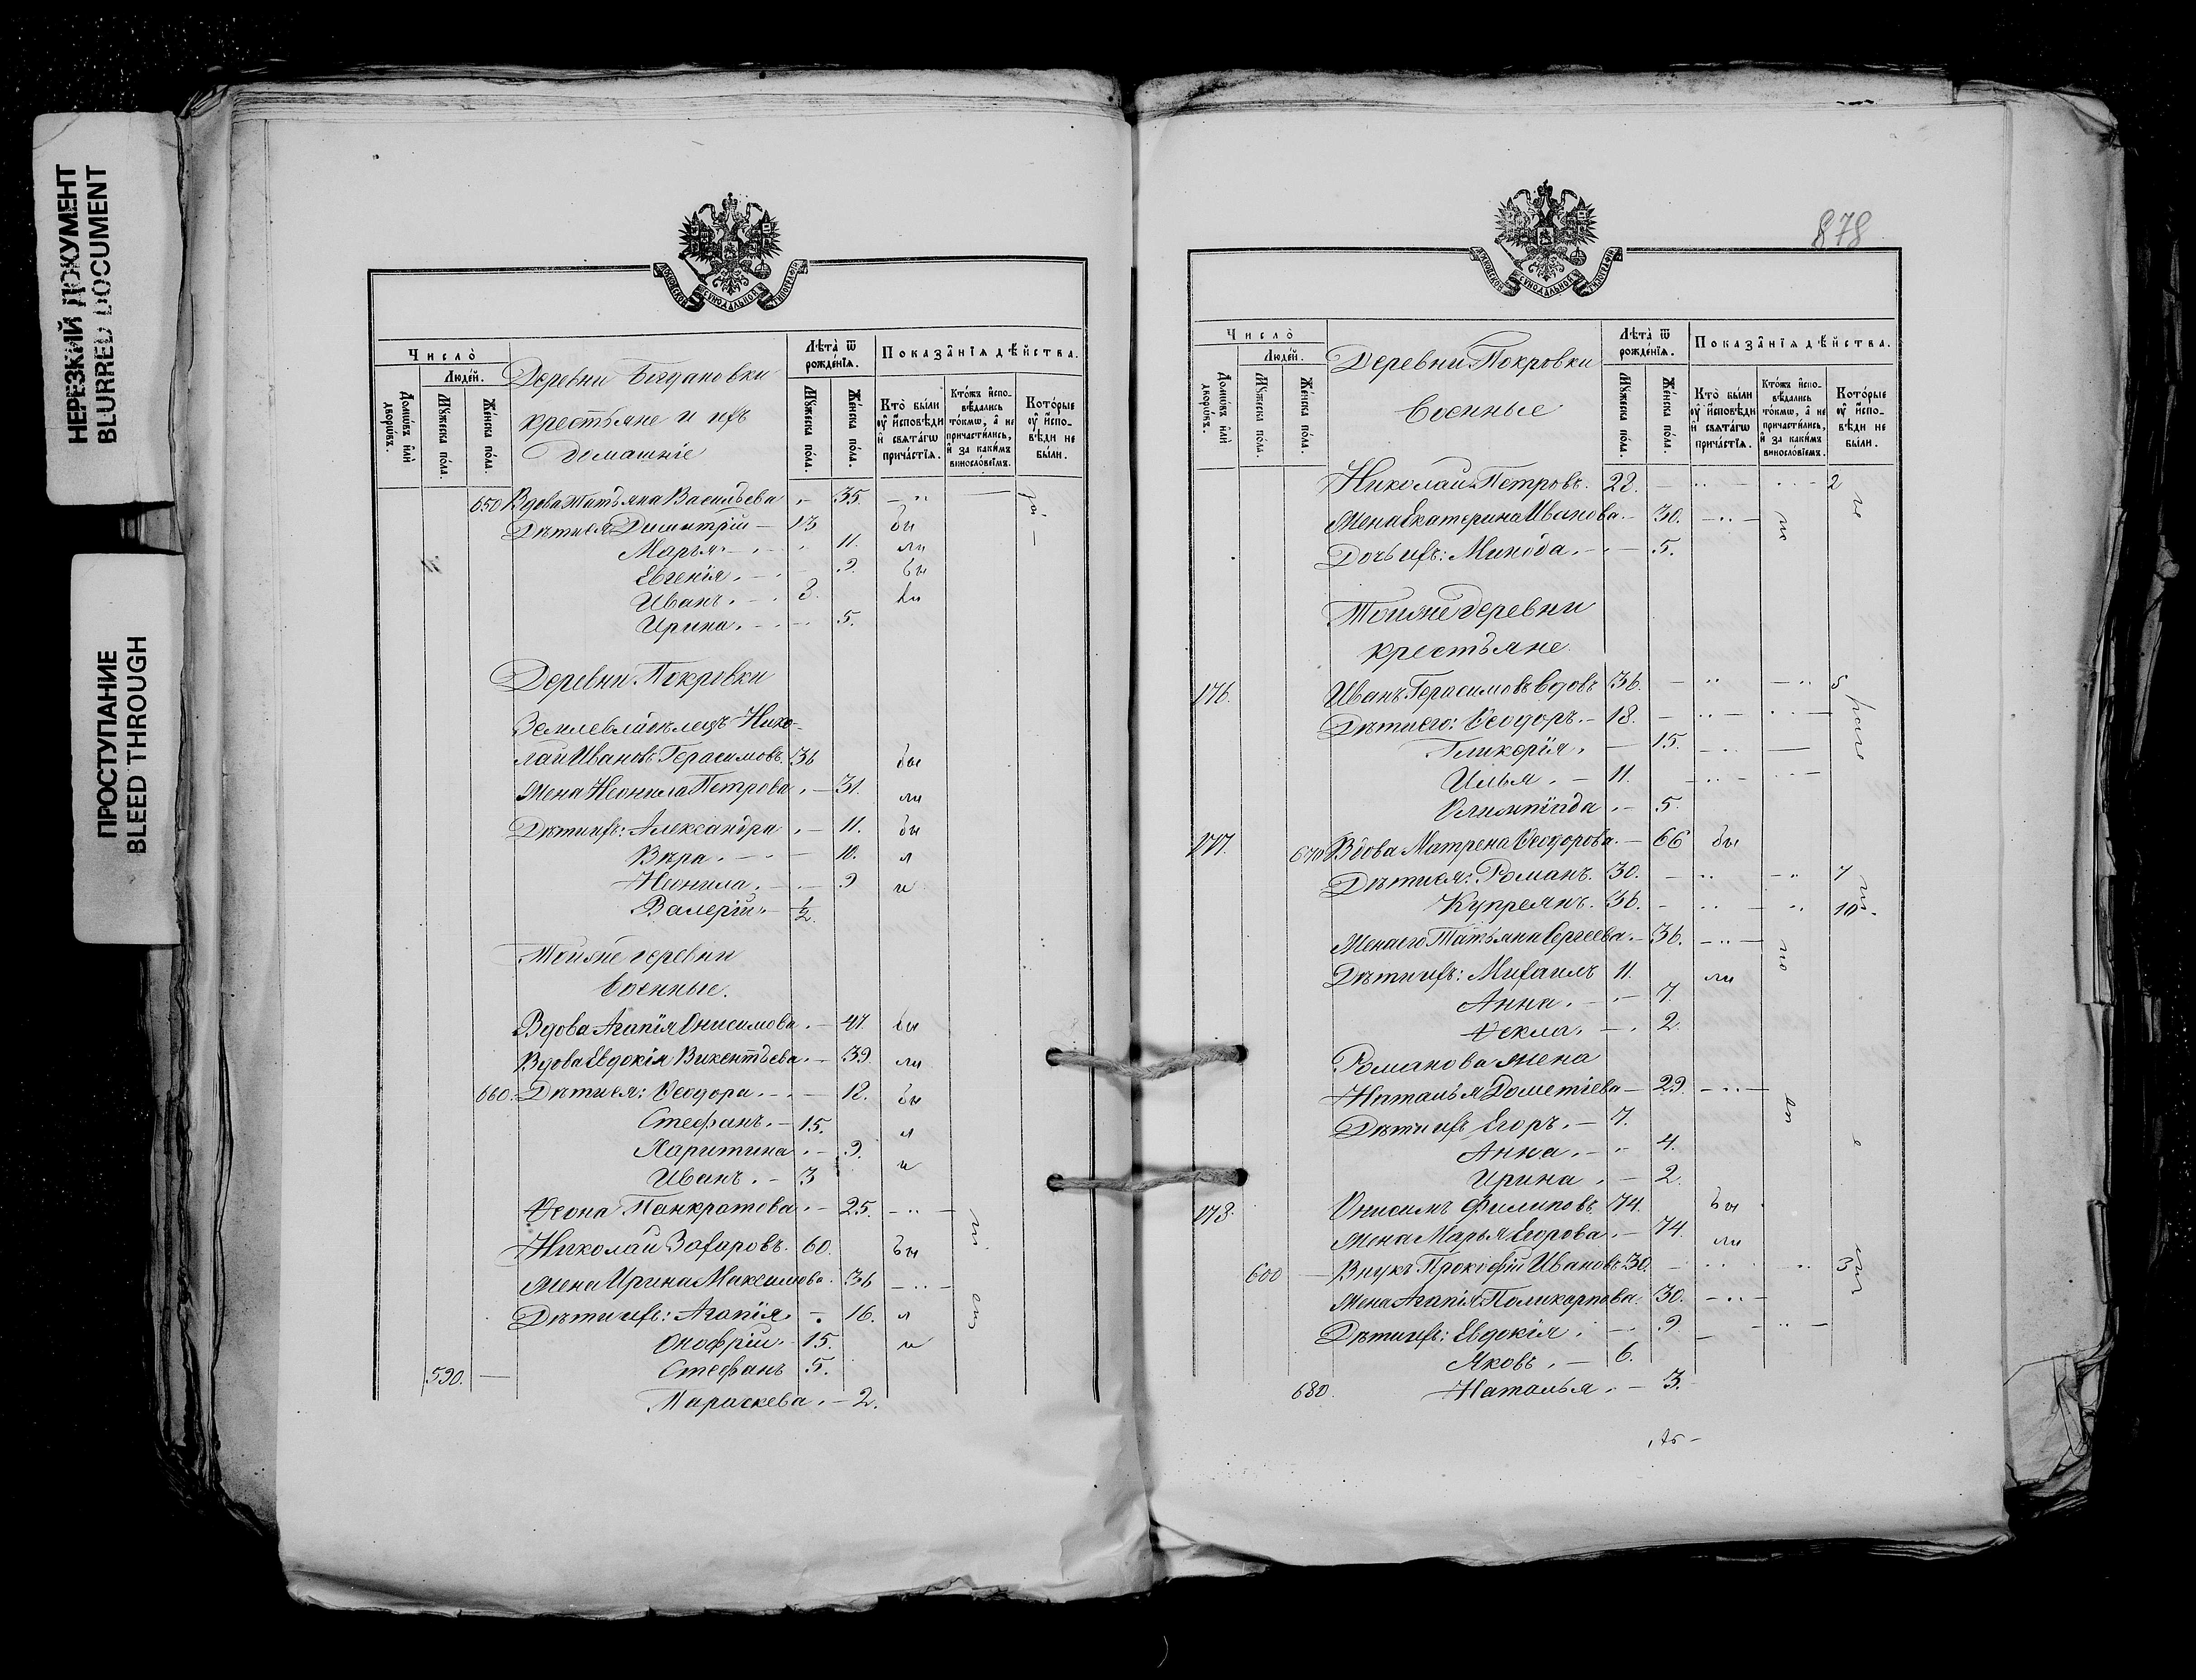 НЕРЕЗКИЙ ДОКУМЕНТ
BLURRED DOCUMENT
ПРОСТУПАНИЕ
BLEED THROUGH
МОСКОВСКОЙ СѴНОДАЛЬНОЙ ТИПОГРАФІИ
Число̀
Людéй.
Домѡ́въ и҆лѝ дворѡ́въ.
Мꙋ́жеска по́ла.
Же́нска по́ла.
Деревни Богдановки
крестьяне и ихъ
домашніе
Лѣта̀ ѿ рожде́нїѧ.
Мꙋ́жеска по́ла.
Же́нска по́ла.
Показа̂нїѧ дѣ́йства.
Кто̀ бы́ли ᲂу҆ и҆сповѣ́ди и҆ свѧта́гѡ прича́стїѧ.
Кто́жъ и҆спо-вѣ́дались то́кмѡ, а҆ не причасти́лись, и҆ за каки́мъ винosло́вїемъ.
Кото́рые ᲂу҆ и҆спо-вѣ́ди не бы́ли.
650 Вдова Татьяна Васильева 35.
Дѣти ея: Димитрій 13 бы
Марья 11. ли
Евгенія 9. бы
Иванъ 8. ли
Ирина 5.
Деревни Покровки
Землевладѣлецъ Нико-
лай Ивановъ Герасимовъ 36 бы
Жена Неонила Петрова 31. ли
Дѣти ихъ: Александра 11. бы
Вѣра 10. л
Неонила 9 и
Валерій 1/2.
Той же деревни
военные.
Вдова Агапія Онисимова 47. бы
Вдова Евдокія Викентьева 39 ли
660. Дѣти ея: Ѳеодора 18. бы
Стефанъ 15. л
Харитина 9. и
Иванъ 3
Панкратова 25.
Николай Захаровъ 60. бы
Жена Ирина Максимова 36
Дѣти ихъ: Агапія 16. л
Онофрій 15. и
590. Стефанъ 5.
Параскева 2.
878
МОСКОВСКОЙ СѴНОДАЛЬНОЙ ТИПОГРАФІИ
Число̀
Людéй.
Домѡ́въ и҆лѝ дворѡ́въ.
Мꙋ́жеска по́ла.
Же́нска по́ла.
Деревни Покровки
военные
Лѣта̀ ѿ рожде́нїѧ.
Мꙋ́жеска по́ла.
Же́нска по́ла.
Показа̂нїѧ дѣ́йства.
Кто̀ бы́ли ᲂу҆ и҆сповѣ́ди и҆ свѧта́гѡ прича́стїѧ.
Кто́жъ и҆спо-вѣ́дались то́кмѡ, а҆ не причасти́лись, и҆ за каки́мъ винosло́вїемъ.
Кото́рые ᲂу҆ и҆спо-вѣ́ди не бы́ли.
Николай Петровъ 28. 2
Жена Екатерина Иванова 30.
Дочь ихъ: 5.
Той же деревни
крестьяне.
176. Иванъ Герасимовъ вдовъ 36. 5
Дѣти его: Ѳеодоръ 18.
Гликерія 15.
Илья 11.
Олимпіада 5.
177. 670 Вдова Матрена Ѳеодорова 66 бы
Дѣти ея: Романъ 30. 7
Купреянъ 36. 10
Жена его Татьяна Сергеева 36.
Дѣти ихъ: Михаилъ 11. ли
Анна 7.
Ѳекла 2.
Романова жена
Наталья Дометіева 29.
Дѣти ихъ Егоръ 7.
Анна 4.
Ирина 2.
178. Онисимъ Филиповъ 74. бы
Жена Марья Егорова 74. ли
600 Внукъ Прокофій Ивановъ 30. 3
Жена Агапія Поликарпова 30.
Дѣти ихъ: Евдокія 9.
Яковъ 6.
680. Наталья 3.